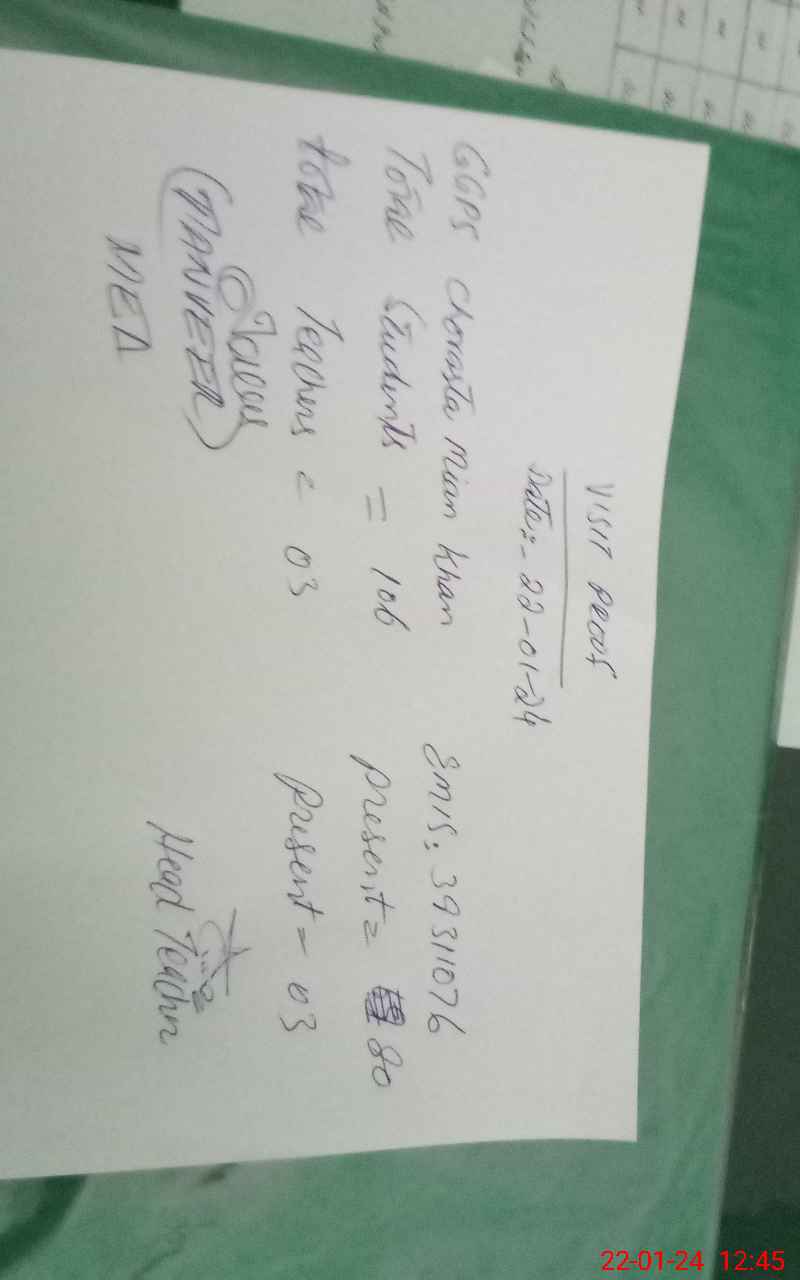 VISIT PROOF
Date:- 22-01-24
GGPS Chorasta Mian Khan EMIS. 39311076
Total Students = 106 present = 80
total Teachers = 03 present = 03
(TANVEER) Head Teacher
MEA
22-01-24 12:45